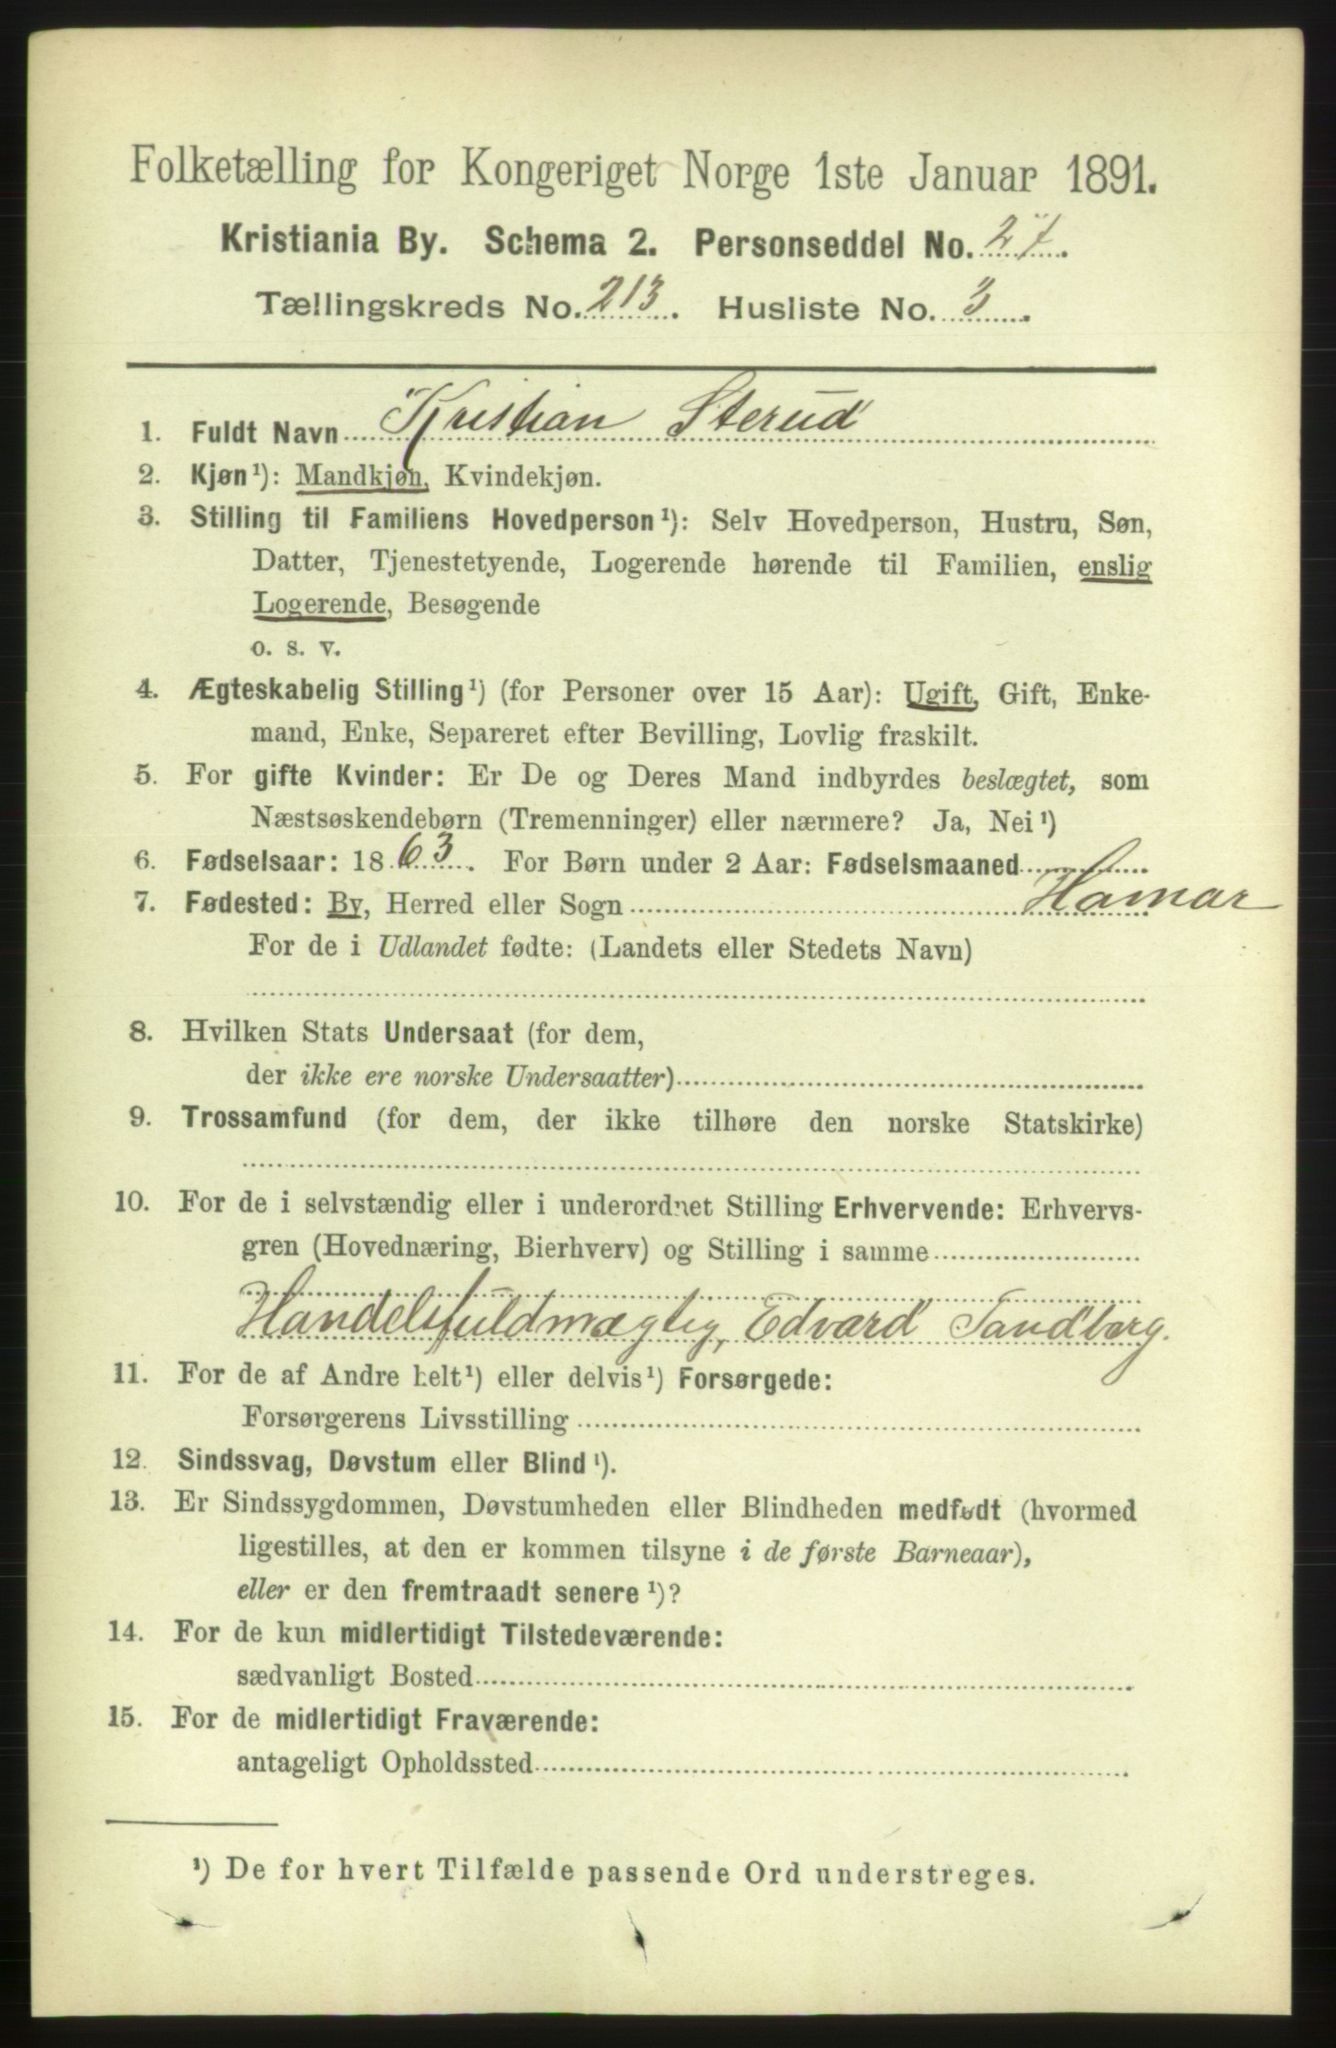 Folketælling for Kongeriget Norge 1ste Januar 1891.
Kristiania By. Schema 2. Personseddel No. 27.
Tællingskreds No. 213. Husliste No. 3.
1. Fuldt Navn Kristian Sterud
2. Kjøn¹): Mandkjøn, Kvindekjøn.
3. Stilling til Familiens Hovedperson¹): Selv Hovedperson, Hustru, Søn,
Datter, Tjenestetyende, Logerende hørende til Familien, enslig
Logerende, Besøgende
o. s. v.
4. Ægteskabelig Stilling¹) (for Personer over 15 Aar): Ugift, Gift, Enke-
mand, Enke, Separeret efter Bevilling, Lovlig fraskilt.
5. For gifte Kvinder: Er De og Deres Mand indbyrdes beslægtet, som
Næstsøskendebørn (Tremenninger) eller nærmere? Ja, Nei¹)
6. Fødselsaar: 1863. For Børn under 2 Aar: Fødselsmaaned
7. Fødested: By, Herred eller Sogn Hamar
For de i Udlandet fødte: (Landets eller Stedets Navn)
8. Hvilken Stats Undersaat (for dem,
der ikke ere norske Undersaatter)
9. Trossamfund (for dem, der ikke tilhøre den norske Statskirke)
10. For de i selvstændig eller i underordnet Stilling Erhvervende: Erhvervs-
gren (Hovednæring, Bierhverv) og Stilling i samme
Handelsfuldmægtig, Edvard Sandberg.
11. For de af Andre helt¹) eller delvis¹) Forsørgede:
Forsørgerens Livsstilling
12. Sindssvag, Døvstum eller Blind¹).
13. Er Sindssygdommen, Døvstumheden eller Blindheden medfødt (hvormed
ligestilles, at den er kommen tilsyne i de første Barneaar),
eller er den fremtraadt senere¹)?
14. For de kun midlertidigt Tilstedeværende:
sædvanligt Bosted
15. For de midlertidigt Fraværende:
antageligt Opholdssted
¹) De for hvert Tilfælde passende Ord understreges.